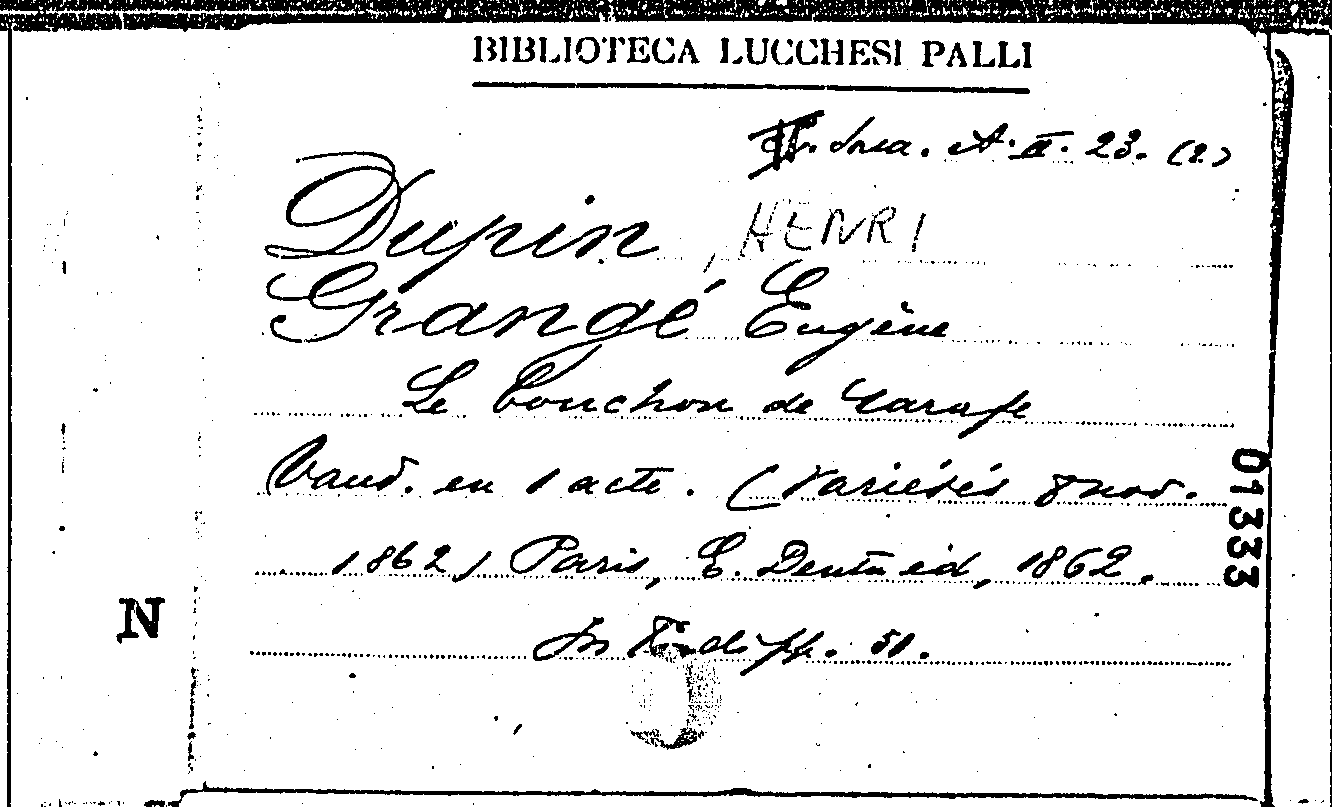 BIBLIOTECA LUCCHESI PALLI
A. II. 23. (2)
Dupin, HENRI
Grangé Eugène
Le bouchon de Carafe
Vaud. en 1 acte. (Variétés 8 nov.
1862) Paris, E. Dentu éd, 1862.
In
01333
N